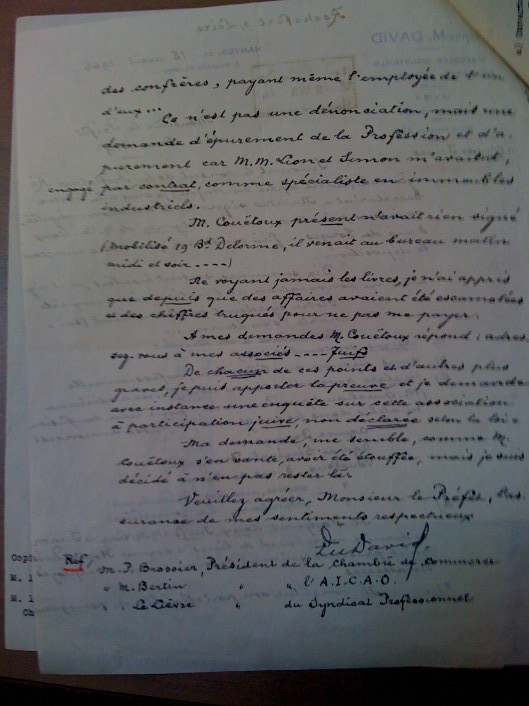 des confrères, payant même l'employée de l'un
d'eux...
Ce n'est pas une dénonciation, mais une
demande d'épurement de la Profession et d'a
purement car M.M. Lion et Simon m'avaient,
engagé par contrat, comme spécialiste en immeubles
industriels.
M. Couëtoux présent n'avait rien signé
(Mobilisé 19 Bd Delorme, il venait au bureau matin
midi et soir ----)
Ne voyant jamais les livres, je n'ai appris
que depuis que des affaires avaient été escamotées
et des chiffres truqués pour ne pas me payer.
A mes demandes M. Couëtoux répond : adres
sez-vous à mes associés ---- Juifs
De chacun de ces points et d'autres plus
graves, je puis apporter la preuve et je demande
avec instance une enquête sur cette association
à participation juive, non déclarée selon la loi
Ma demande, me semble, comme M.
Couëtoux s'en vante, avoir été étouffée, mais je suis
décidé à n'en pas rester là.
Veuillez agréer, Monsieur le Préfet, l'as
surance de mes sentiments respectueux
Réf M. P. Brossier, Président de la Chambre de Commerce
" M. Bertin " " l'A.I.C.A.O.
" Le Lièvre " du Syndicat Professionnel
Copi
M. l
M. l
Ch